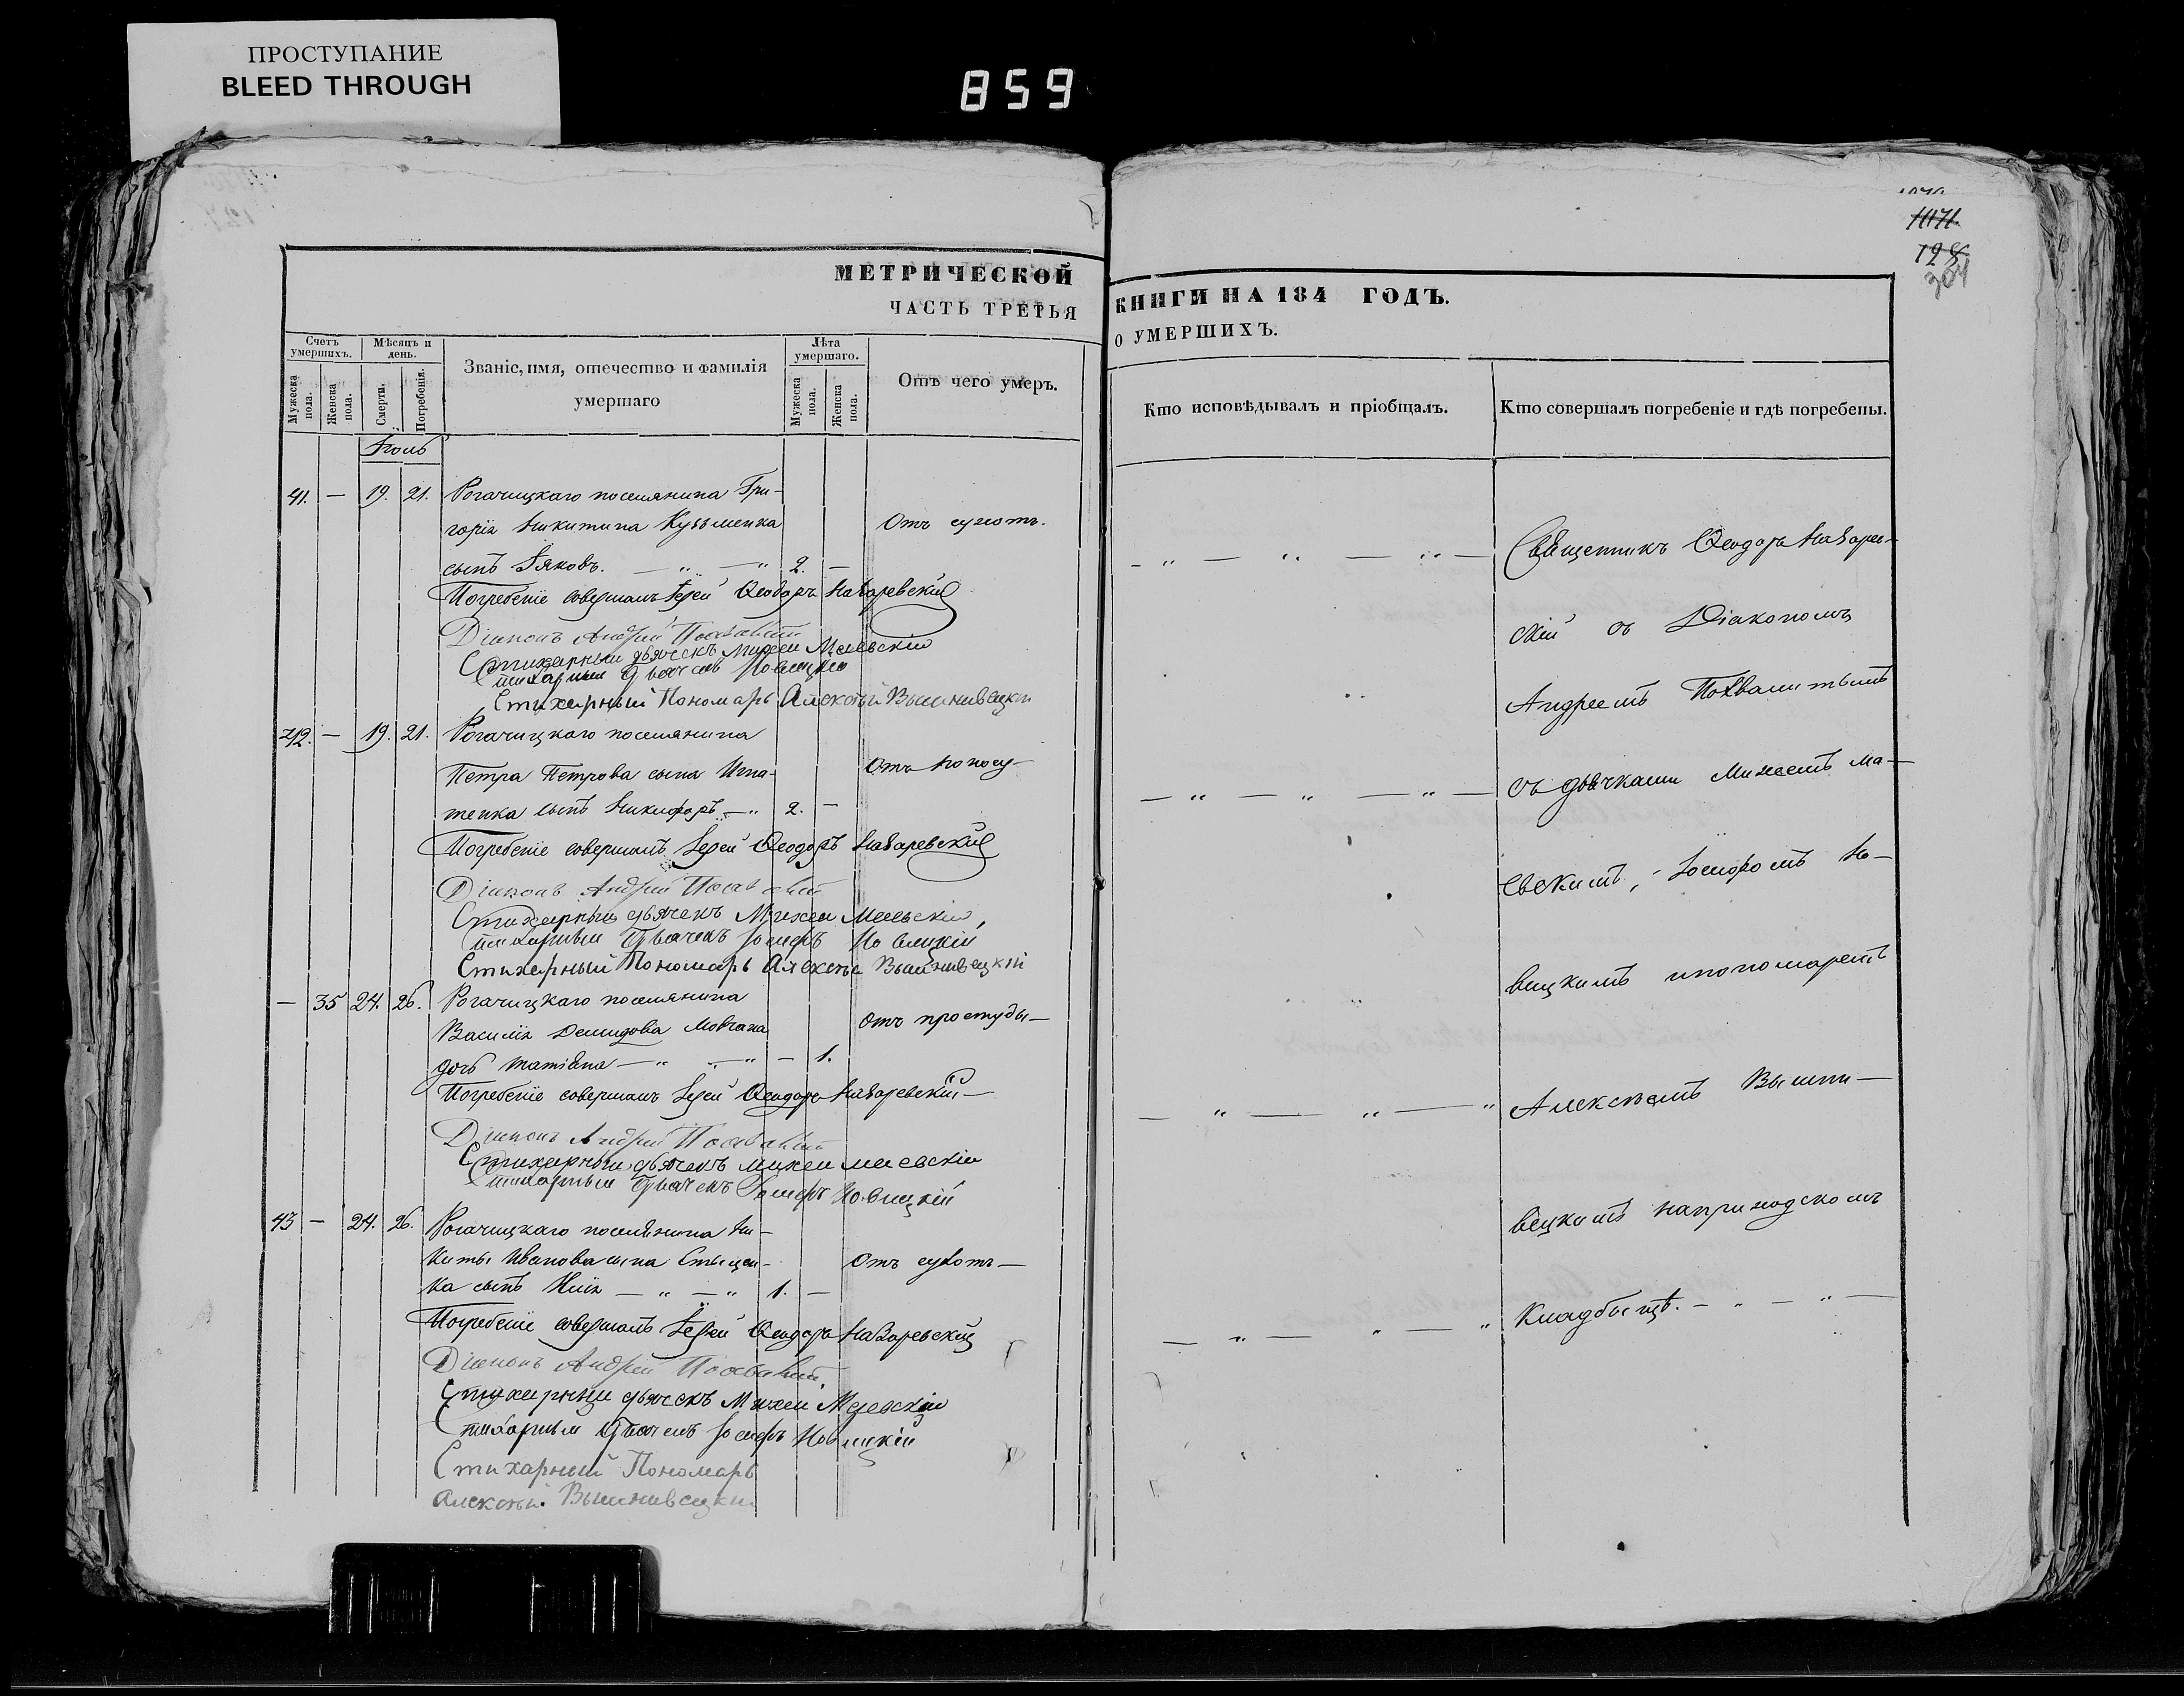 ПРОСТУПАНИЕ
BLEED THROUGH
859
128
МЕТРИЧЕСКОЙ
ЧАСТЬ ТРЕТЬЯ
КНИГИ НА 184 ГОДЪ.
О УМЕРШИХЪ.
Счетъ умершихъ.
Мѣсяцъ и день.
Званіе, имя, отечество и фамилія умершаго
Лѣта умершаго.
Отъ чего умеръ.
Кто исповѣдывалъ и пріобщалъ.
Кто совершалъ погребеніе и гдѣ погребены.
Мужеска пола.
Женска пола.
Смерти.
Погребенія.
Мужеска пола.
Женска пола.
41. — 19. 21. Рогачицкаго поселянина Гри-
горія Никитина Кузьменка Отъ сухотъ.
сынъ Іяковъ. — „ — „ 2. —
Погребеніе совершалъ Іерей Ѳеодоръ Назаревскій
Діаконъ Андрей
Стихарный дьячекъ Михей Маевскій
Стихарный дьячекъ Новицкій
Стихарный Пономарь Алексѣй Вышнивецкий
42. — 19. 21. Рогачицкаго поселянина
Петра Петрова сына Игна- Отъ поносу
тенка сынъ Никифоръ — „ 2. —
Погребеніе совершалъ Іерей Ѳеодоръ Назаревскій
Діаконъ Андрей
Стихарный дьячекъ Михей Маевскій
Стихарный дьячекъ Іосифъ Новицкій
Стихарный Пономарь Алексѣй Вышнивецкій
— 35 24. 26. Рогачицкаго поселянина
Василія Демидова Мовчана Отъ простуды —
дочь Татіана — „ — „ — 1.
Погребеніе совершалъ Іерей Ѳеодоръ Назаревскій —
Діаконъ Андрей
Стихарный дьячекъ Михей Маевскій
Стихарный дьячекъ Іосифъ Новицкій
43 — 24. 26. Рогачицкаго поселянина Ни-
киты Иванова сына Отъ сухотъ —
ка сынъ — „ — „ 1. —
Погребеніе совершалъ Іерей Ѳеодоръ Назаревскій
Діаконъ Андрей
Стихарный дьячекъ Михей Маевскій
Стихарный дьячекъ Іосифъ Новицкій
Стихарный Пономарь
Алексѣй Вышнивецкий
Священникъ Ѳеодоръ Назарев-
скій съ Діакономъ
Андреемъ Похвалитымъ
съ дьячками Михеемъ Ма-
евскимъ, Іосифомъ Но-
вицкимъ и пономаремъ
Алексѣемъ Вышни-
вецкимъ на приходскомъ
кладбищѣ. — „ — „ —